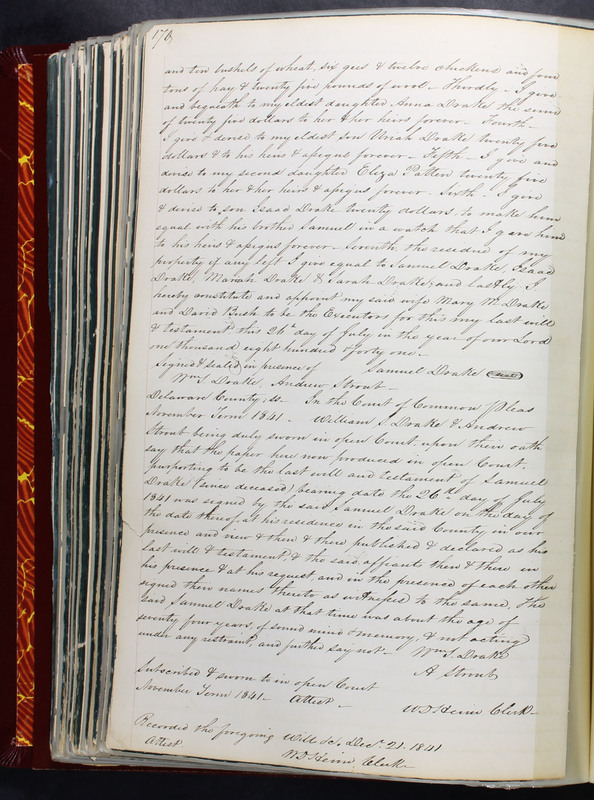 178
and ten bushels of wheat, six gees & twelve chickens and four
tons of hay & twenty five pounds of wool - Thirdly - I give
and bequeath to my eldest daughter Anna Doake the sum
of twenty five dollars to her & her heirs forever - Fourth -
I give & devise to my eldest son Uriah Doake twenty five
dollars & to his heirs & assigns forever - Fifth - I give and
devise to my second daughter Eliza Patten twenty five
dollars to her & her heirs & assigns forever. Sixth - I give
& devise to son Isaac Doake twenty dollars, to make him
equal with his brother Samuel in a watch that I gave him
to his heirs & assigns forever - Seventh the residue of my
property if any left I give equal to Samuel Doake, Isaac
Doake, Mariah Doake & Sarah Doake, and lastly I
hereby constitute and appoint my said wife Mary M. Doake
and David Bush to be the Executors for this my last will
& testament this 26th day of July in the year of our Lord
one thousand eight hundred & forty one -
Signed & sealed in presence of Samuel Doake seal
Wm S. Doake, Andrew Stroub -
Delaware County, ss - In the Court of Common Pleas
November Term 1841 - William S. Doake & Andrew
Stroub being duly sworn in open Court upon their oath
say that the paper here now produced in open Court,
purporting to be the last will and testament of Samuel
Doake (since deceased) bearing date the 26th day of July
1841 was signed by the said Samuel Doake on the day of
the date thereof, at his residence in the said County in our
presence and new & then & there published & declared as his
last will & testament, & the said affiants then & there in
his presence & at his request, and in the presence of each other
signed their names thereto as witnesses to the same. The
said Samuel Doake at that time was about the age of
seventy four years, of sound mind & memory, & not acting
under any restraint, and further say not - Wm S. Doake
A Stroub
Subscribed & sworn to in open Court
November Term 1841 - Attest -
W D Heim Clerk -
Recorded the foregoing Will &c, Decr 21. 1841
Attest
W D Heim, Clerk -